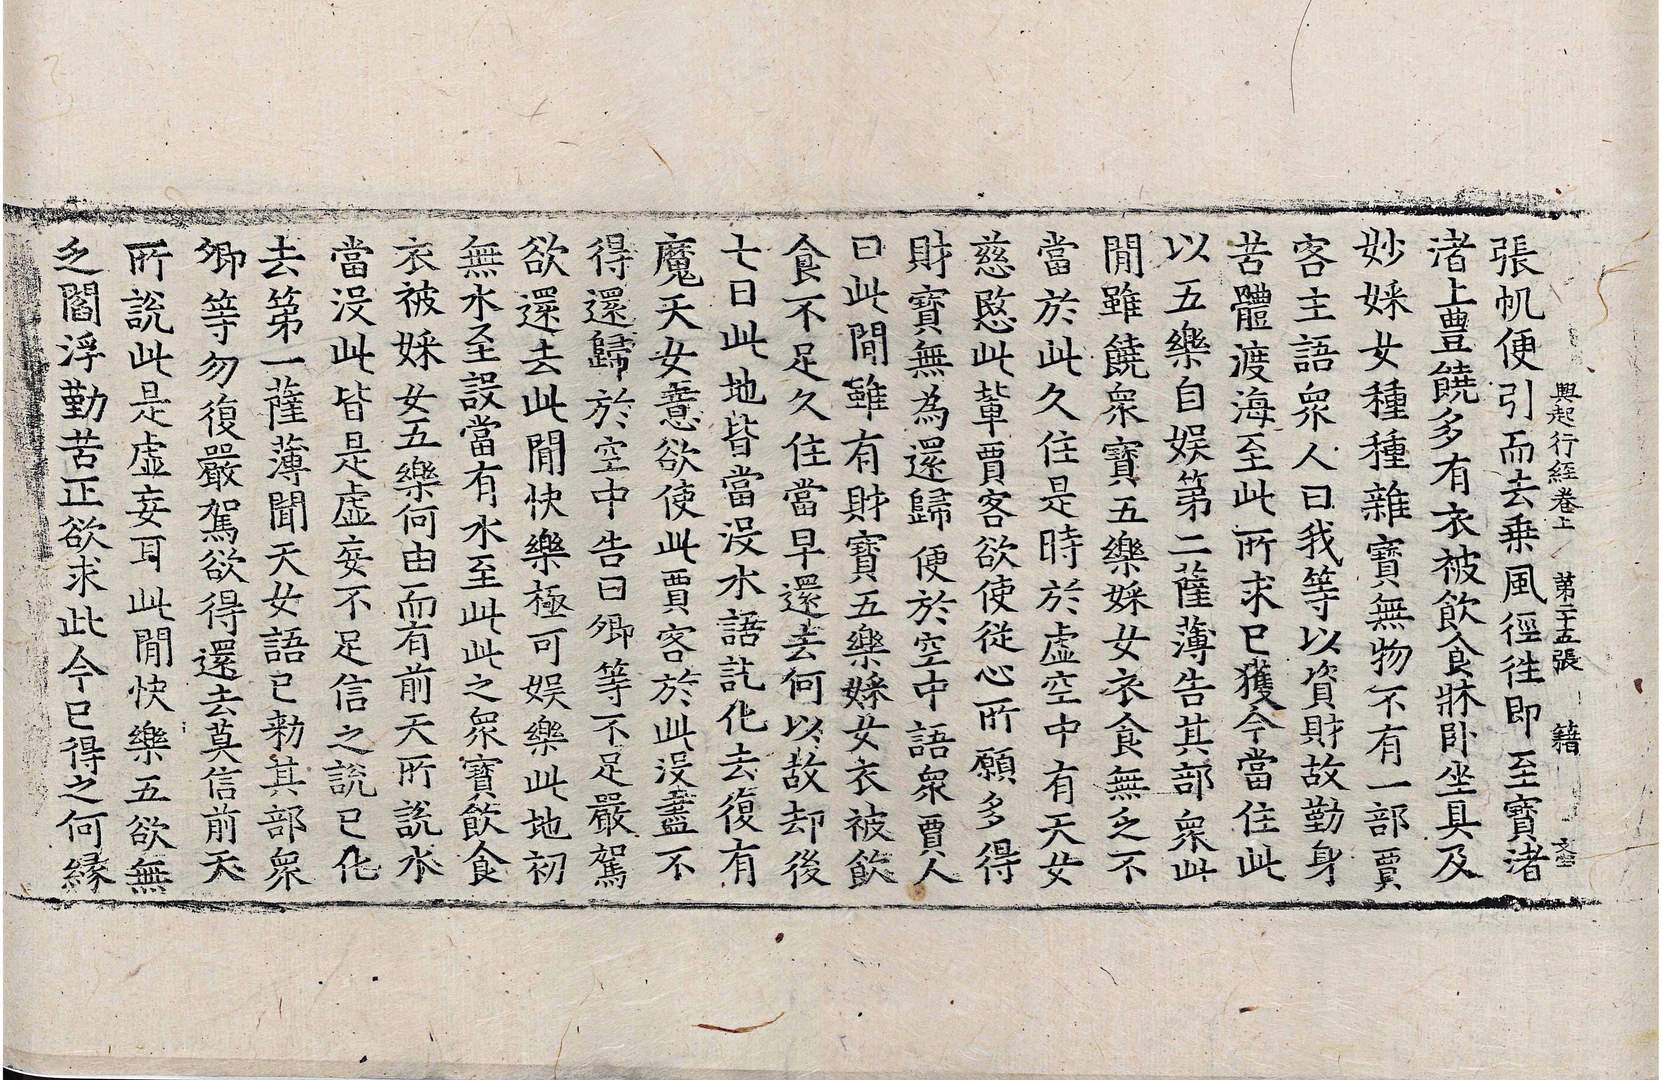 興起行經卷上 第二十五張 籍
張帆便引而去乗風徑徃即至寶渚
渚上豊饒多有衣被飲食牀卧坐具及
妙婇女種種雜寶無物不有一部賈
客主語衆人曰我等以資財故勤身
苦體渡海至此所求已獲今當住此
以五樂自娱第二薩薄告其部衆此
閒雖饒衆寶五樂婇女衣食無乏不
當於此久住是時於虚空中有天女
慈愍此軰賈客欲使從心所願多得
財寶無為還歸便於空中語衆賈人
曰此閒雖有財寶五樂婇女衣被飲
食不足久住當早還去何以故却後
七日此地皆當没水語訖化去復有
魔天女意欲使此賈客於此没盡不
得還歸於空中告曰卿等不足嚴駕
欲還去此閒快樂極可娱樂此地初
無水至設當有水至此此之衆寶飲食
衣被婇女五樂何由而有前天所說水
當没此皆是虚妄不足信之說已化
去第一薩薄聞天女語已勑其部衆
卿等勿復嚴駕欲得還去莫信前天
所說此是虚妄耳此閒快樂五欲無
乏閻浮勤苦正欲求此今已得之何縁